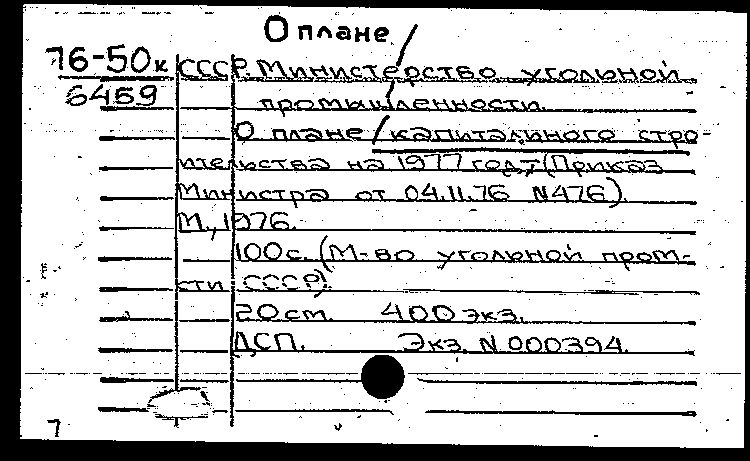 О плане
76-50к СССР. Министерство угольной
6459 промышленности.
О плане капитального стро-
ительства на 1977 год. (Приказ
Министра от 04.11.76 N476).
М., 1976.
100с. (М-во угольной пром-
сти СССР).
20см. 400 экз.
ДСП. Экз. N 000394.
7